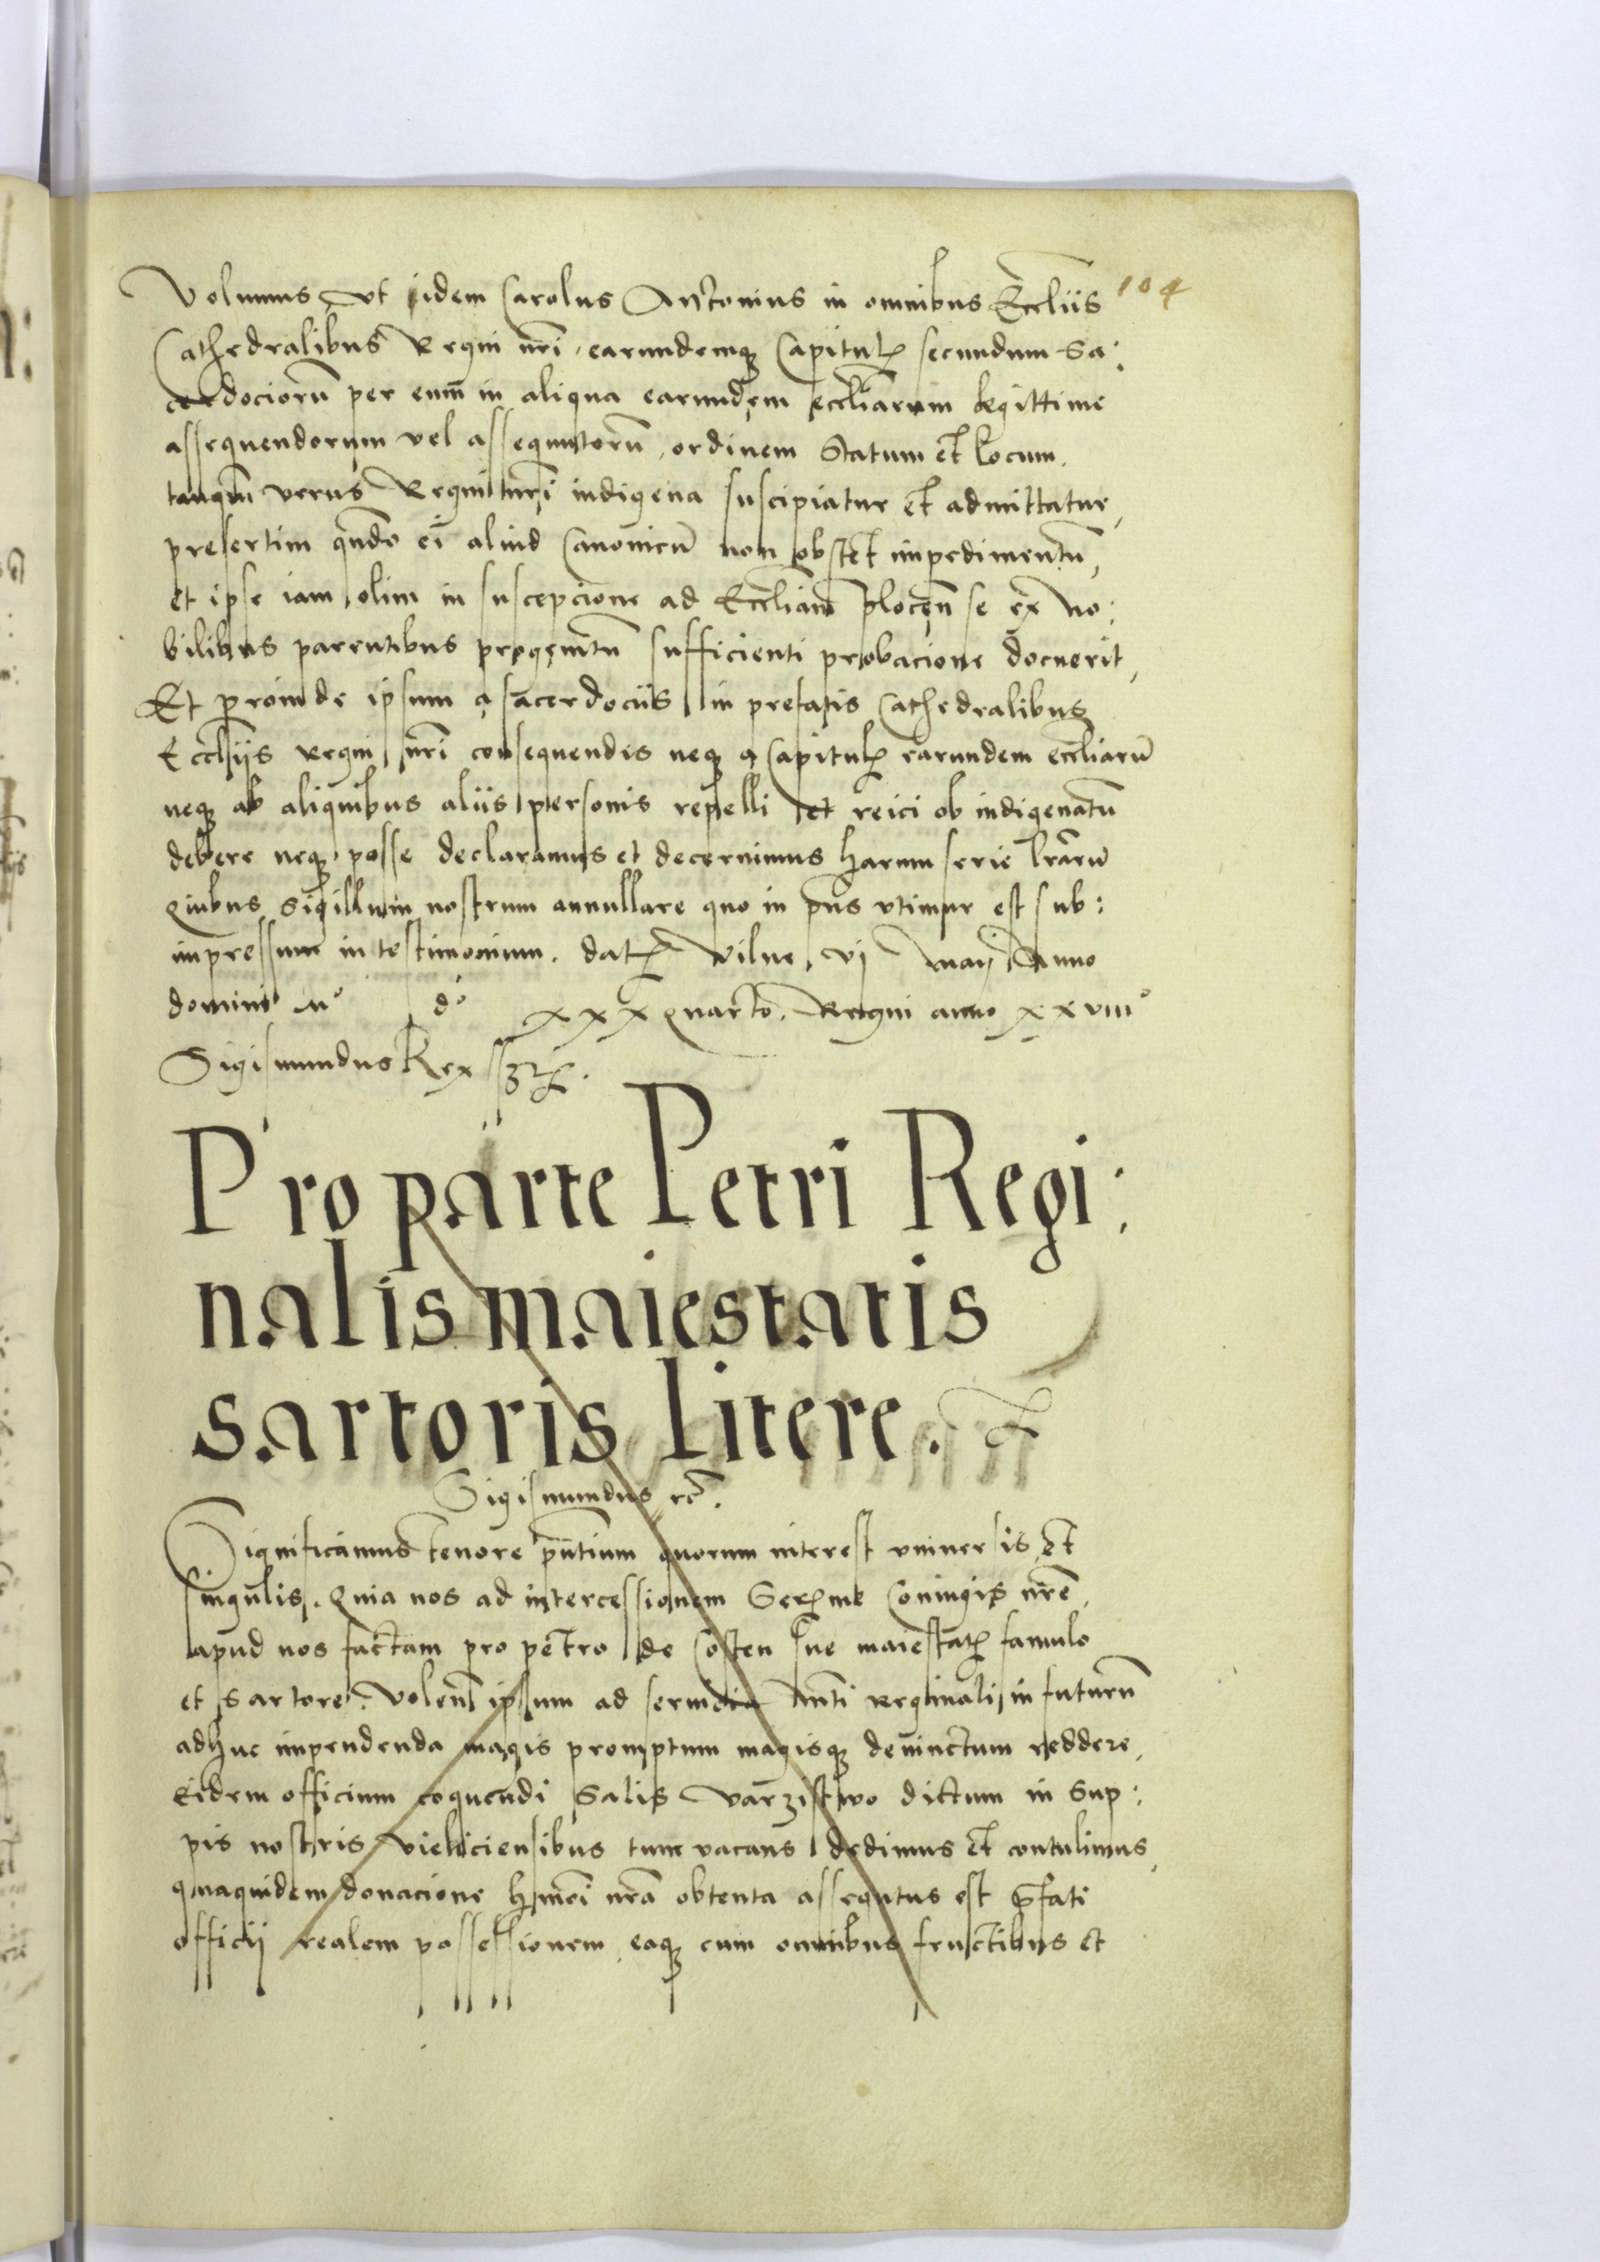 Volumus, vt idem Carolus Antonius in omnibus Eccłiis 104
Cathedralibus Regni nr̄i, earundemq3 Capitulꝝ secundum Sa:
cerdociorū per eum̄ in aliqua earundem eccliarum legittime
assequendorum vel assequutorū, ordinem Statum et Locum.
tanqm̄ verus Regni nr̄i indigena suscipiatur et admittatur,
presertim qn̄do ei aliud Canonicū non obstet impedimentū,
et ipse iam olim in suscepcione ad Eccliam plocen̄ se ex No:
bilibus parentibus progenitū sufficienti probacione docuerit,
Et proinde ipsum a sacerdociis in prefatis Cathedralibus
Eccliis Regni nr̄i consequendis neq3 a Capitulꝝ earundem eccliarū
neq3 ab aliquibus aliis personis repelli et reici ob indigenatū
debere neq3 posse declaramus et decernimus harum serie lr̄arū
Quibus Sigillum nostrum annullare quo in pn̄s vtimur est sub:
impressum in testimonium. Datꝝ Vilne, vj maij Anno
domini Mº dº xxx quarto, Regni anno xxviiiº
Sigismundus Rex sszt
Pro parte Petri Regi:
nalis maiestatis
sartoris litere.
Sigismundus rc̄.
Significamus tenore pn̄tium quorum interest vniuersis, et
singulis. Quia nos ad intercessionem Serꝝme Coniugis nr̄e,
apud nos factam pro petro de Costen sue maiestatꝝ famulo
et sartore. volen̄ ipsum ad seruicia Mti reginali, in futurū
adhuc impendenda magis promptum magisq3 deuinctum reddere,
Eidem officium coquendi Salis Varzistwo dictum in Sup:
pis nostris vieliciensibus tunc vacans dedimus et contulimus,
quaquidem donacione hm̄oi nr̄a obtenta assequtus est p̄fati
officij realem possessionem, eaq3 cum omnibus fructibus et